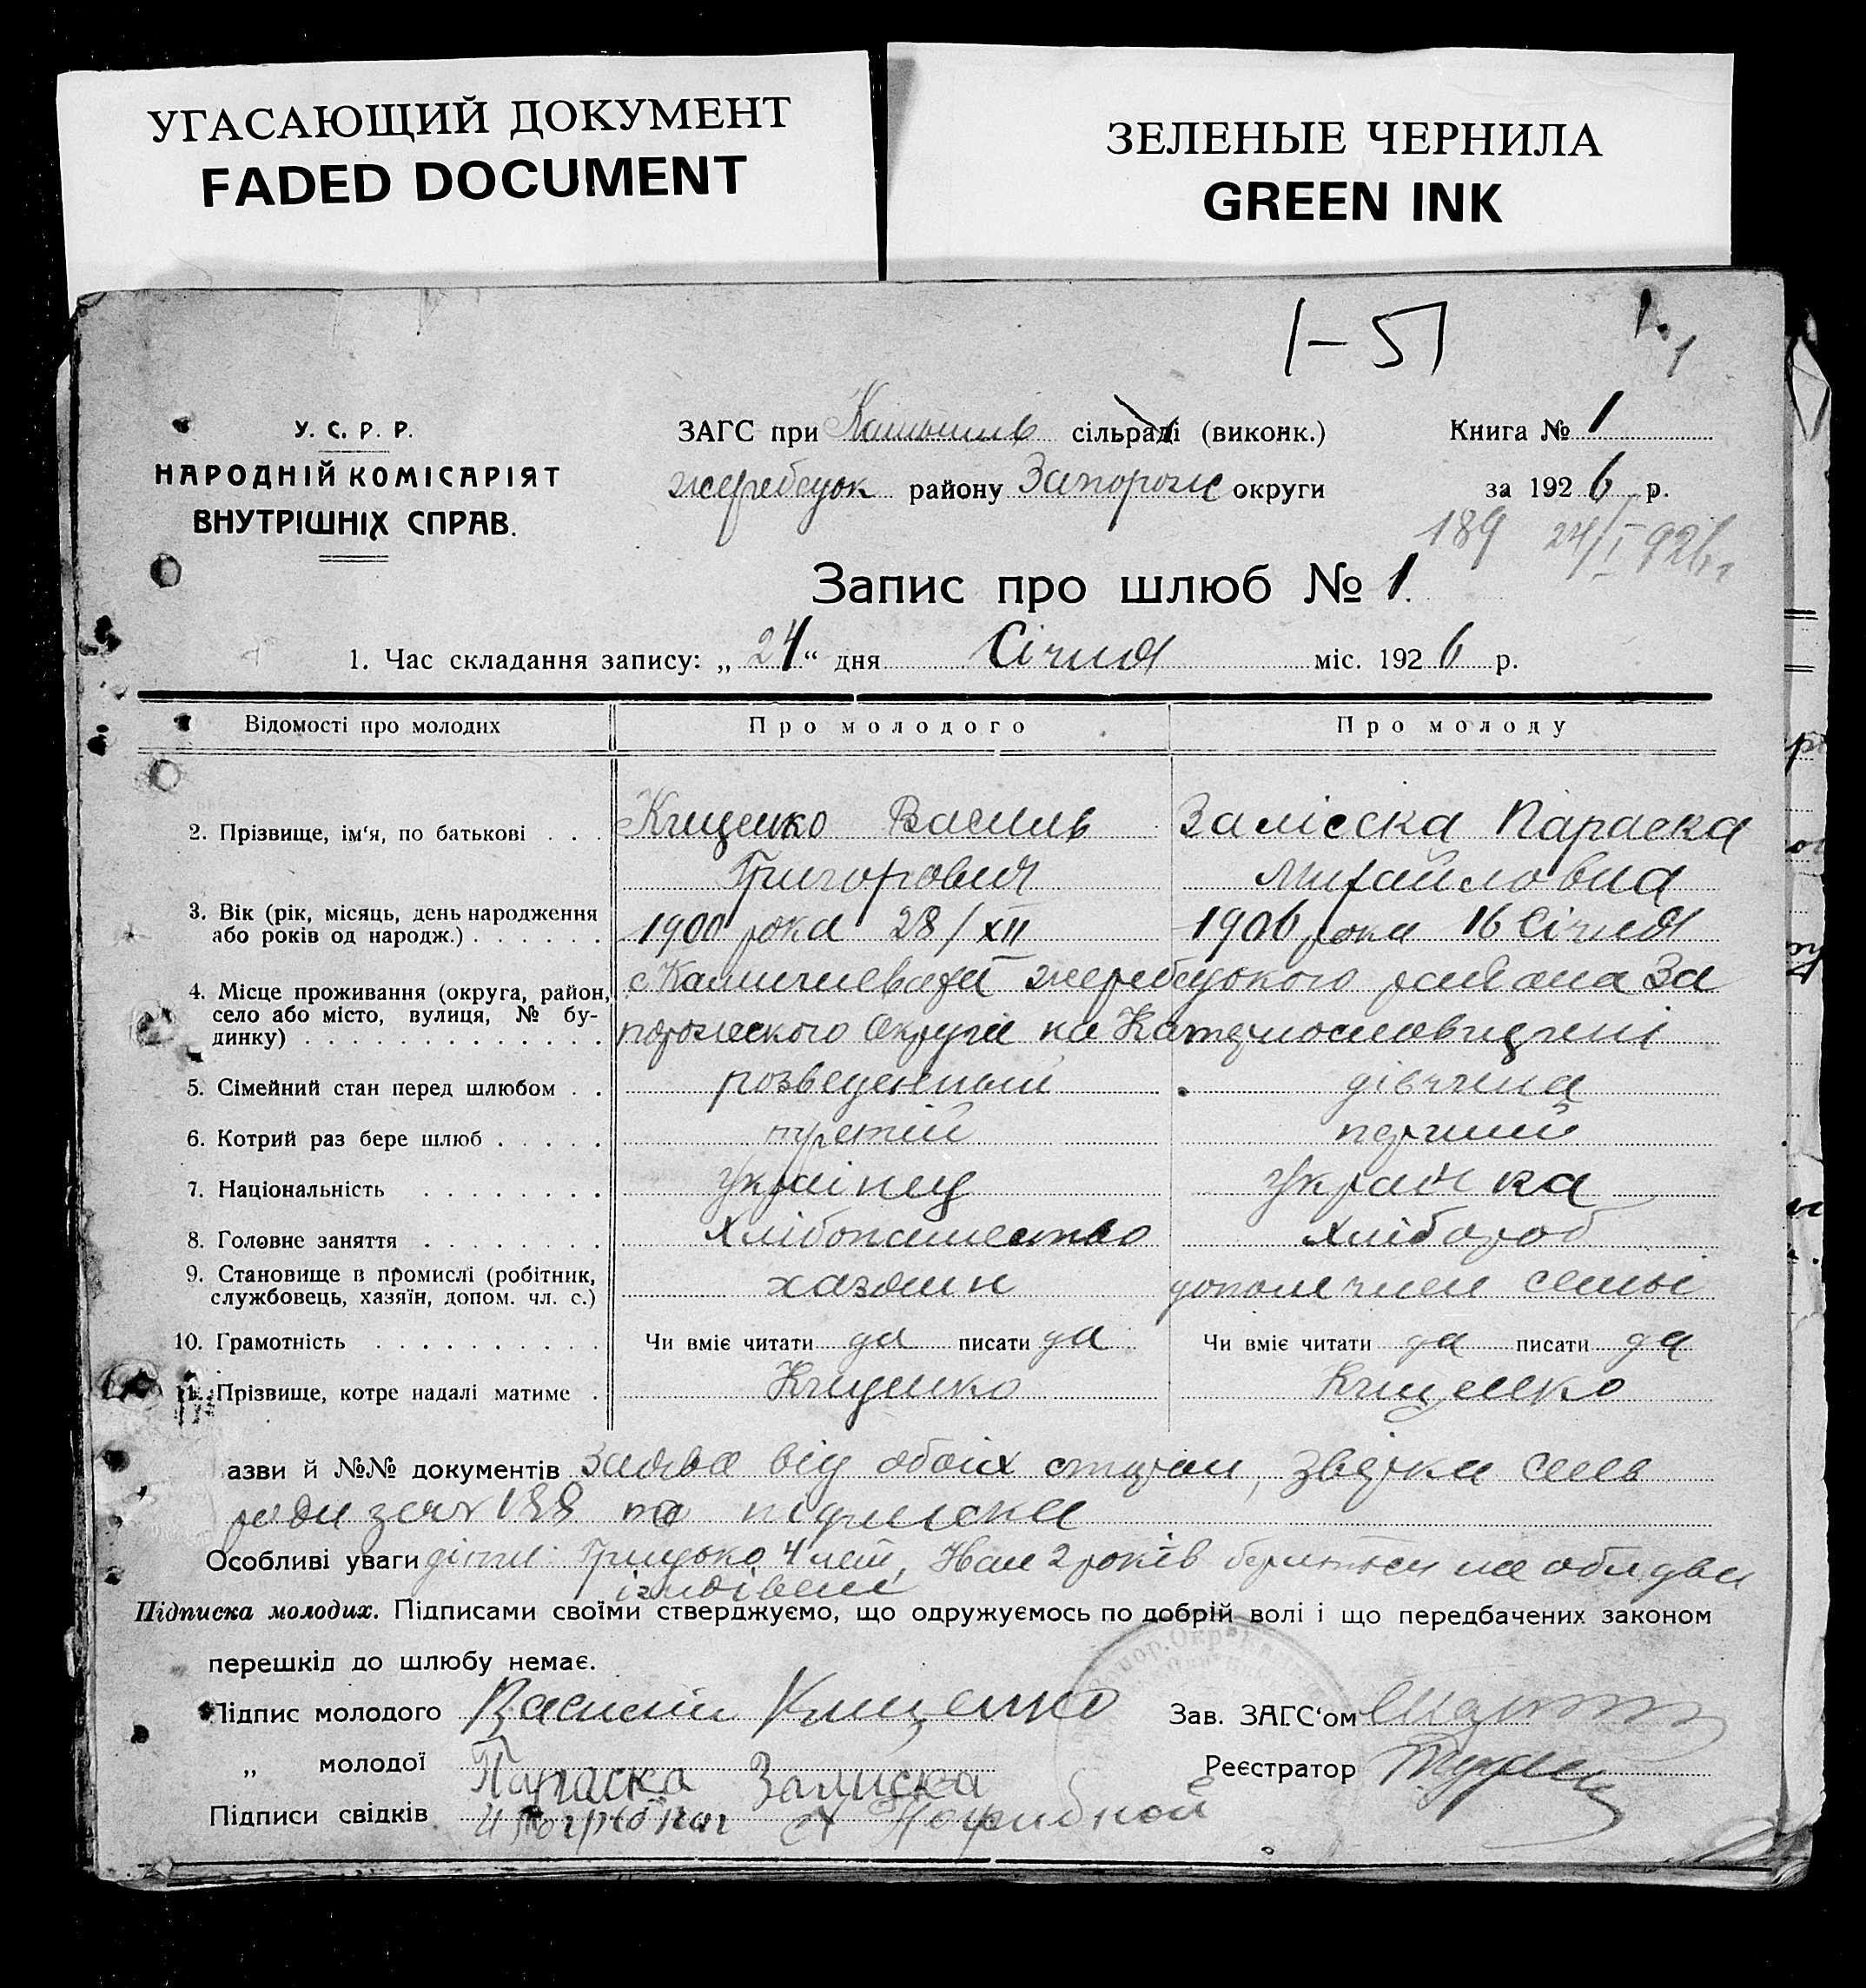 УГАСАЮЩИЙ ДОКУМЕНТ
FADED DOCUMENT
ЗЕЛЕНЫЕ ЧЕРНИЛА
GREEN INK
1–51
1. 1
У. С. Р. Р.
НАРОДНІЙ КОМІСАРІЯТ
ВНУТРІШНІХ СПРАВ.
ЗАГС при сільраді (виконк.)
району Запорож округи
Книга № 1
за 1926 р.
189 24/I 926г
Запис про шлюб № 1.
1. Час складання запису: „24“ дня Січня міс. 1926 р.
Відомості про молодих Про молодого Про молоду
2. Прізвище, ім‘я, по батькові . . . Кищенко Василь Залієска Параска
Григорович Михайловна
3. Вік (рік, місяць, день народження
або років од народж.) . . . . . . 1900 рока 28/XII 1906 рока 16 Січня
4. Місце проживання (округа, район, с Камишеваті жеребецького района За
село або місто, вулиця, № бу-
динку) . . . . . . . . . . . . . порожского Округа на Катеринославщині
5. Сімейний стан перед шлюбом . . розведенный дівчина
6. Котрий раз бере шлюб . . . . . третій перший
7. Національність . . . . . . . . українец Українка
8. Головне заняття . . . . . . . . Хлібопашество хлібороб
9. Становище в промислі (робітник,
службовець, хазяїн, допом. чл. с.) хазяин член семьі
10. Грамотність . . . . . . . . . . Чи вміє читати да писати да Чи вміє читати да писати да
11. Прізвище, котре надалі матиме . Кищенко Кищенко
азви й №№ документів Заява від обоіх сторон, звідка
188 та підписка
Особливі уваги діти: Грицько 4 лет, 2 років
Підписка молодих. Підписами своїми стверджуємо, що одружуємось по добрій волі і що передбачених законом
перешкід до шлюбу немає.
Підпис молодого Василий Кищенко Зав. ЗАГС‘ом
„ молодої Параска Залиска Реєстратор
Підписи свідків